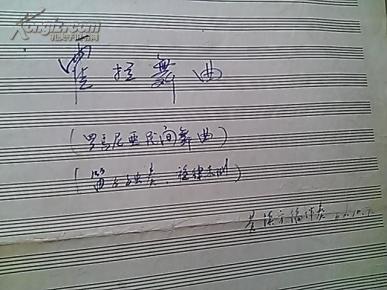 孔夫子旧书网
霍拉舞曲
(罗马尼亚民间舞曲)
(笛子独奏、
编伴奏